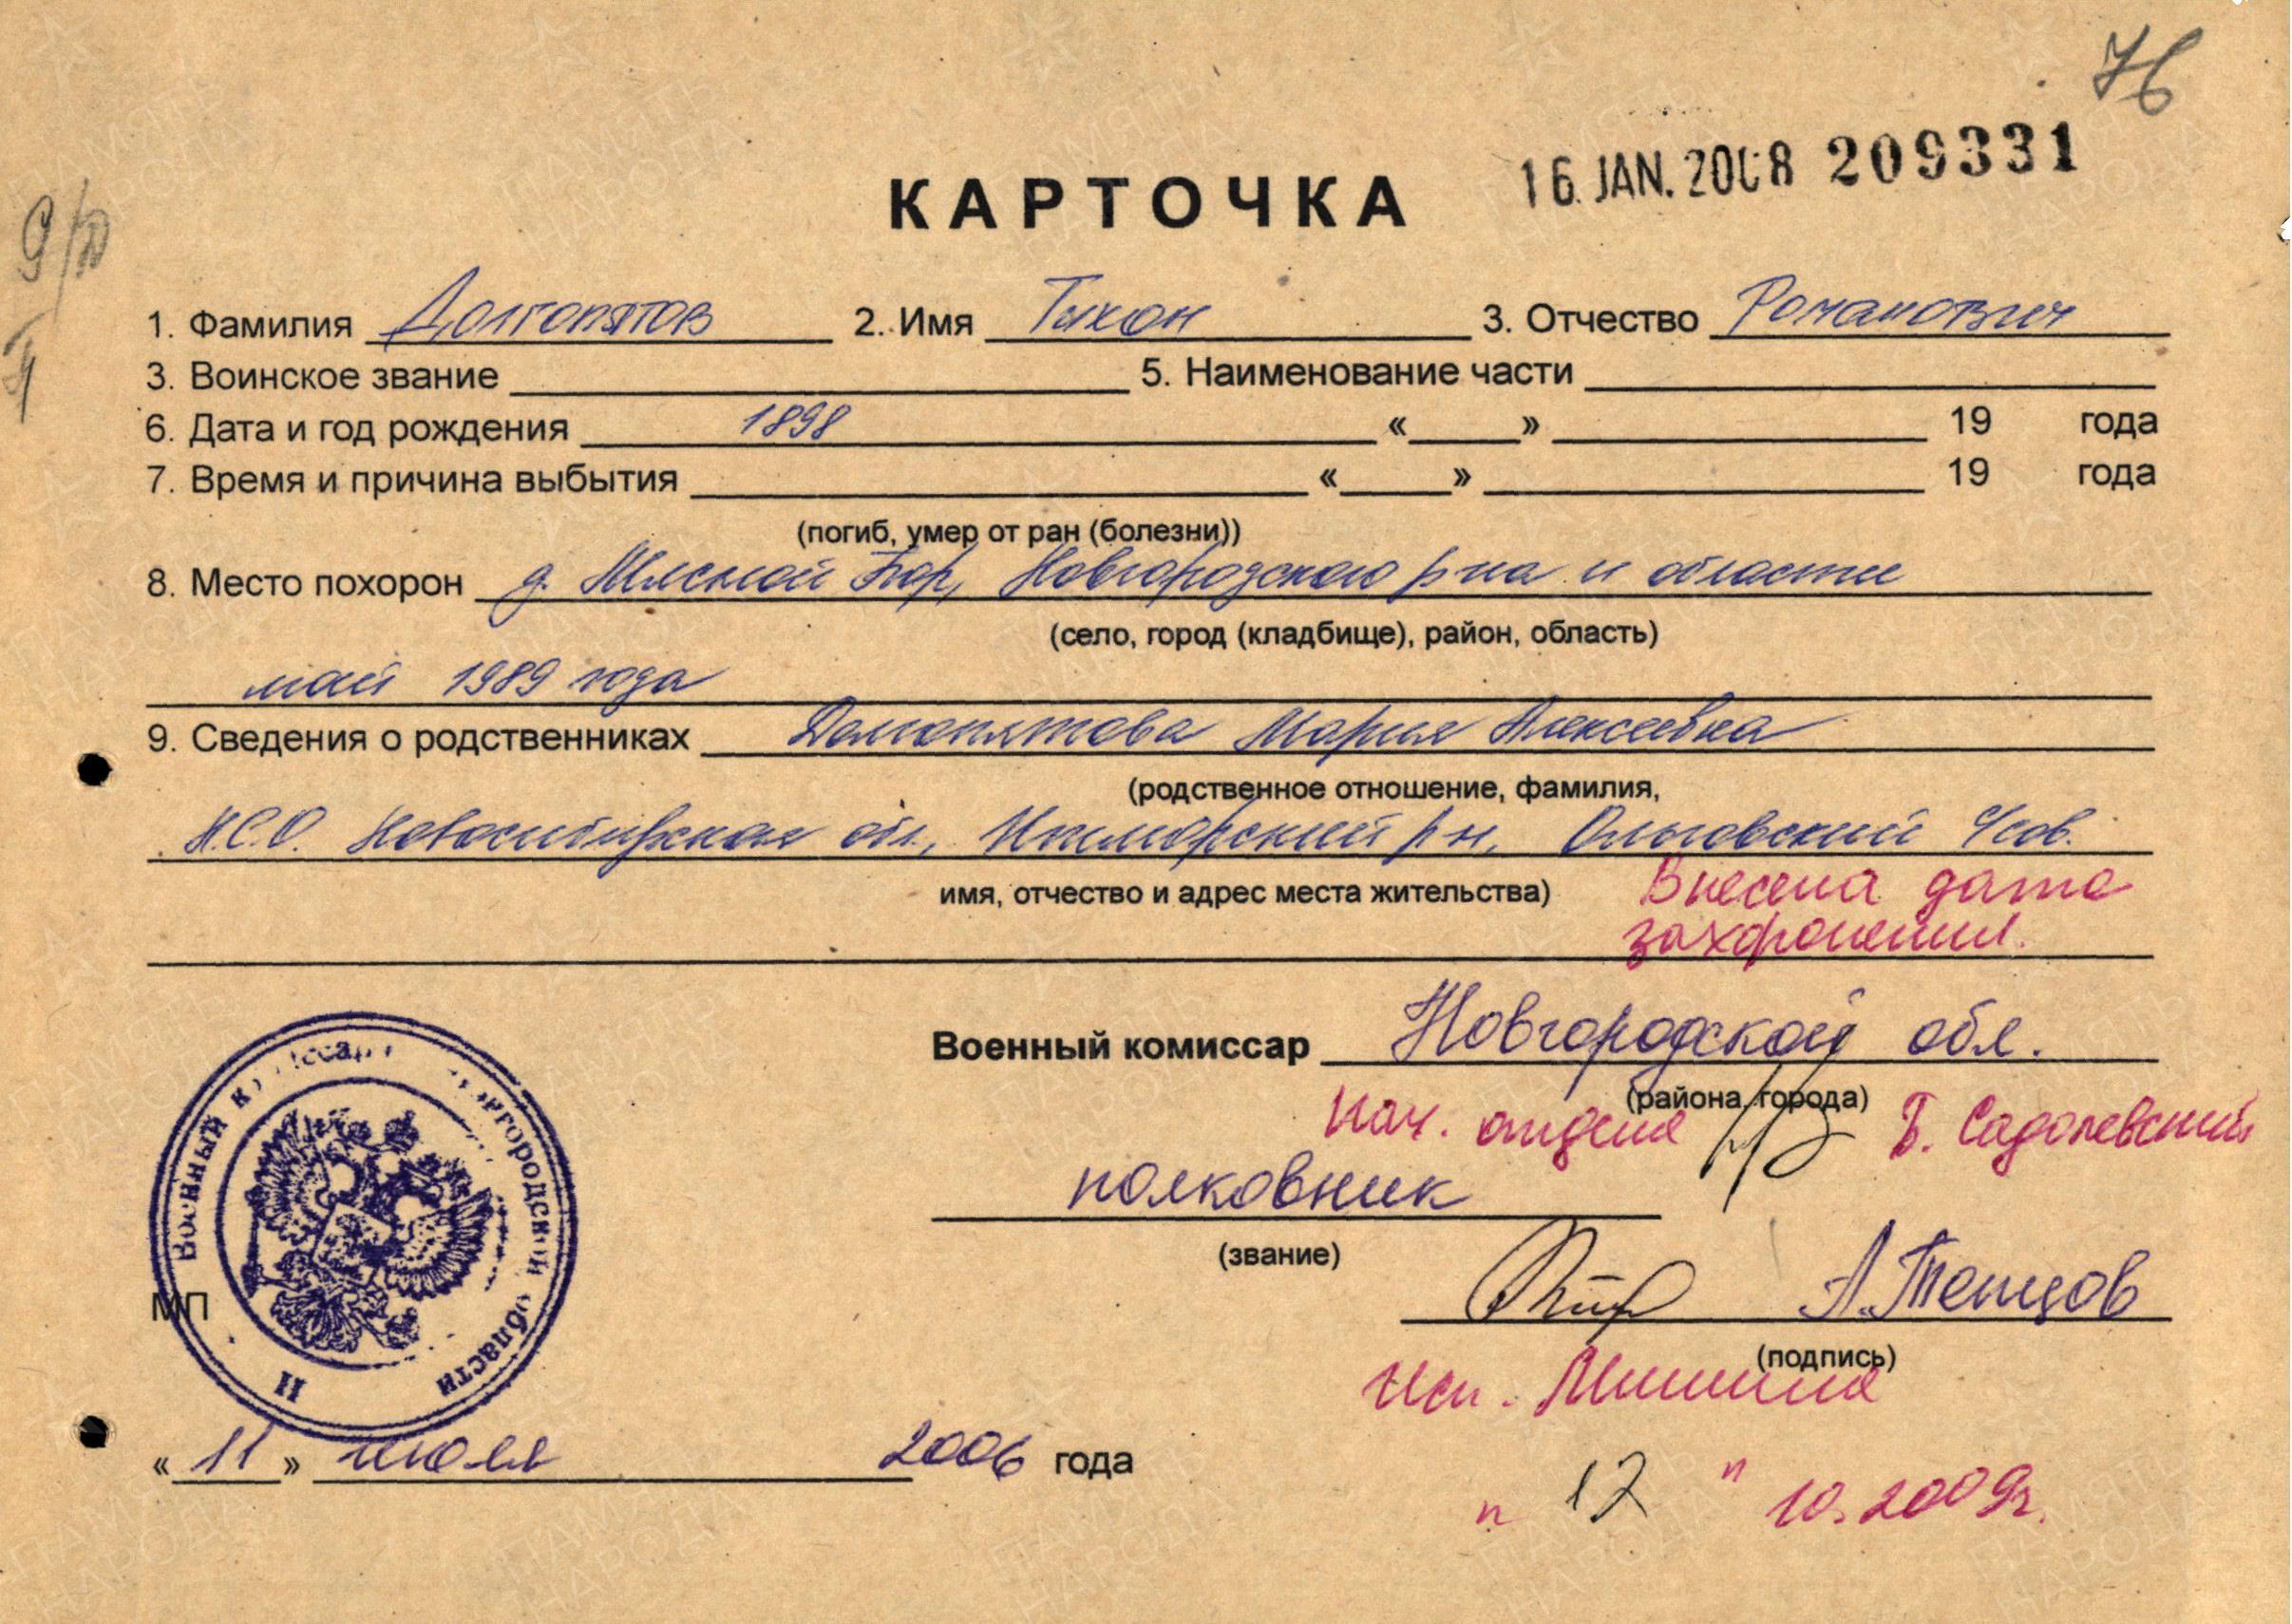 76
16. JAN. 2008 209331
КАРТОЧКА
1. Фамилия Долгопятов 2. Имя Тихон 3. Отчество Романович
3. Воинское звание 5. Наименование части
6. Дата и год рождения 1898 « » 19 года
7. Время и причина выбытия « » 19 года
(погиб, умер от ран (болезни))
8. Место похорон д. Мясной Бор, Новгородского р-на и области
(село, город (кладбище), район, область)
май 1989 года
9. Сведения о родственниках Долгопятова Мария Алексеевна
(родственное отношение, фамилия,
Н.С.О. Новосибирская обл., Ижморский р-н, Ольговский с/сов.
имя, отчество и адрес места жительства)
Внесена дата
захоронения.
Военный комиссар Новгородской обл.
(района, города)
Нач. отдела Б. Садолевский
полковник
(звание)
А. Тепцов
(подпись)
Исп. Мишина
Военный комиссар Новгородской области
МП
« 11 » июля 2006 года
" 12 " 10. 2009г.
ПАМЯТЬ НАРОДА